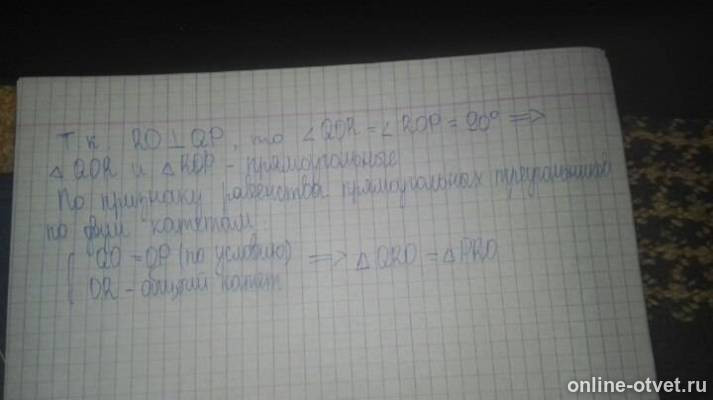 Т к RO ⊥ QP, то ∠QOR = ∠ROP = 90° =>
△ QOR и △ ROP - прямоугольные
По признаку равенства прямоугольных треугольников
по двум катетам
{ QO = OP (по условию) => △ QRO = △ PRO
OR - общий катет
online-otvet.ru